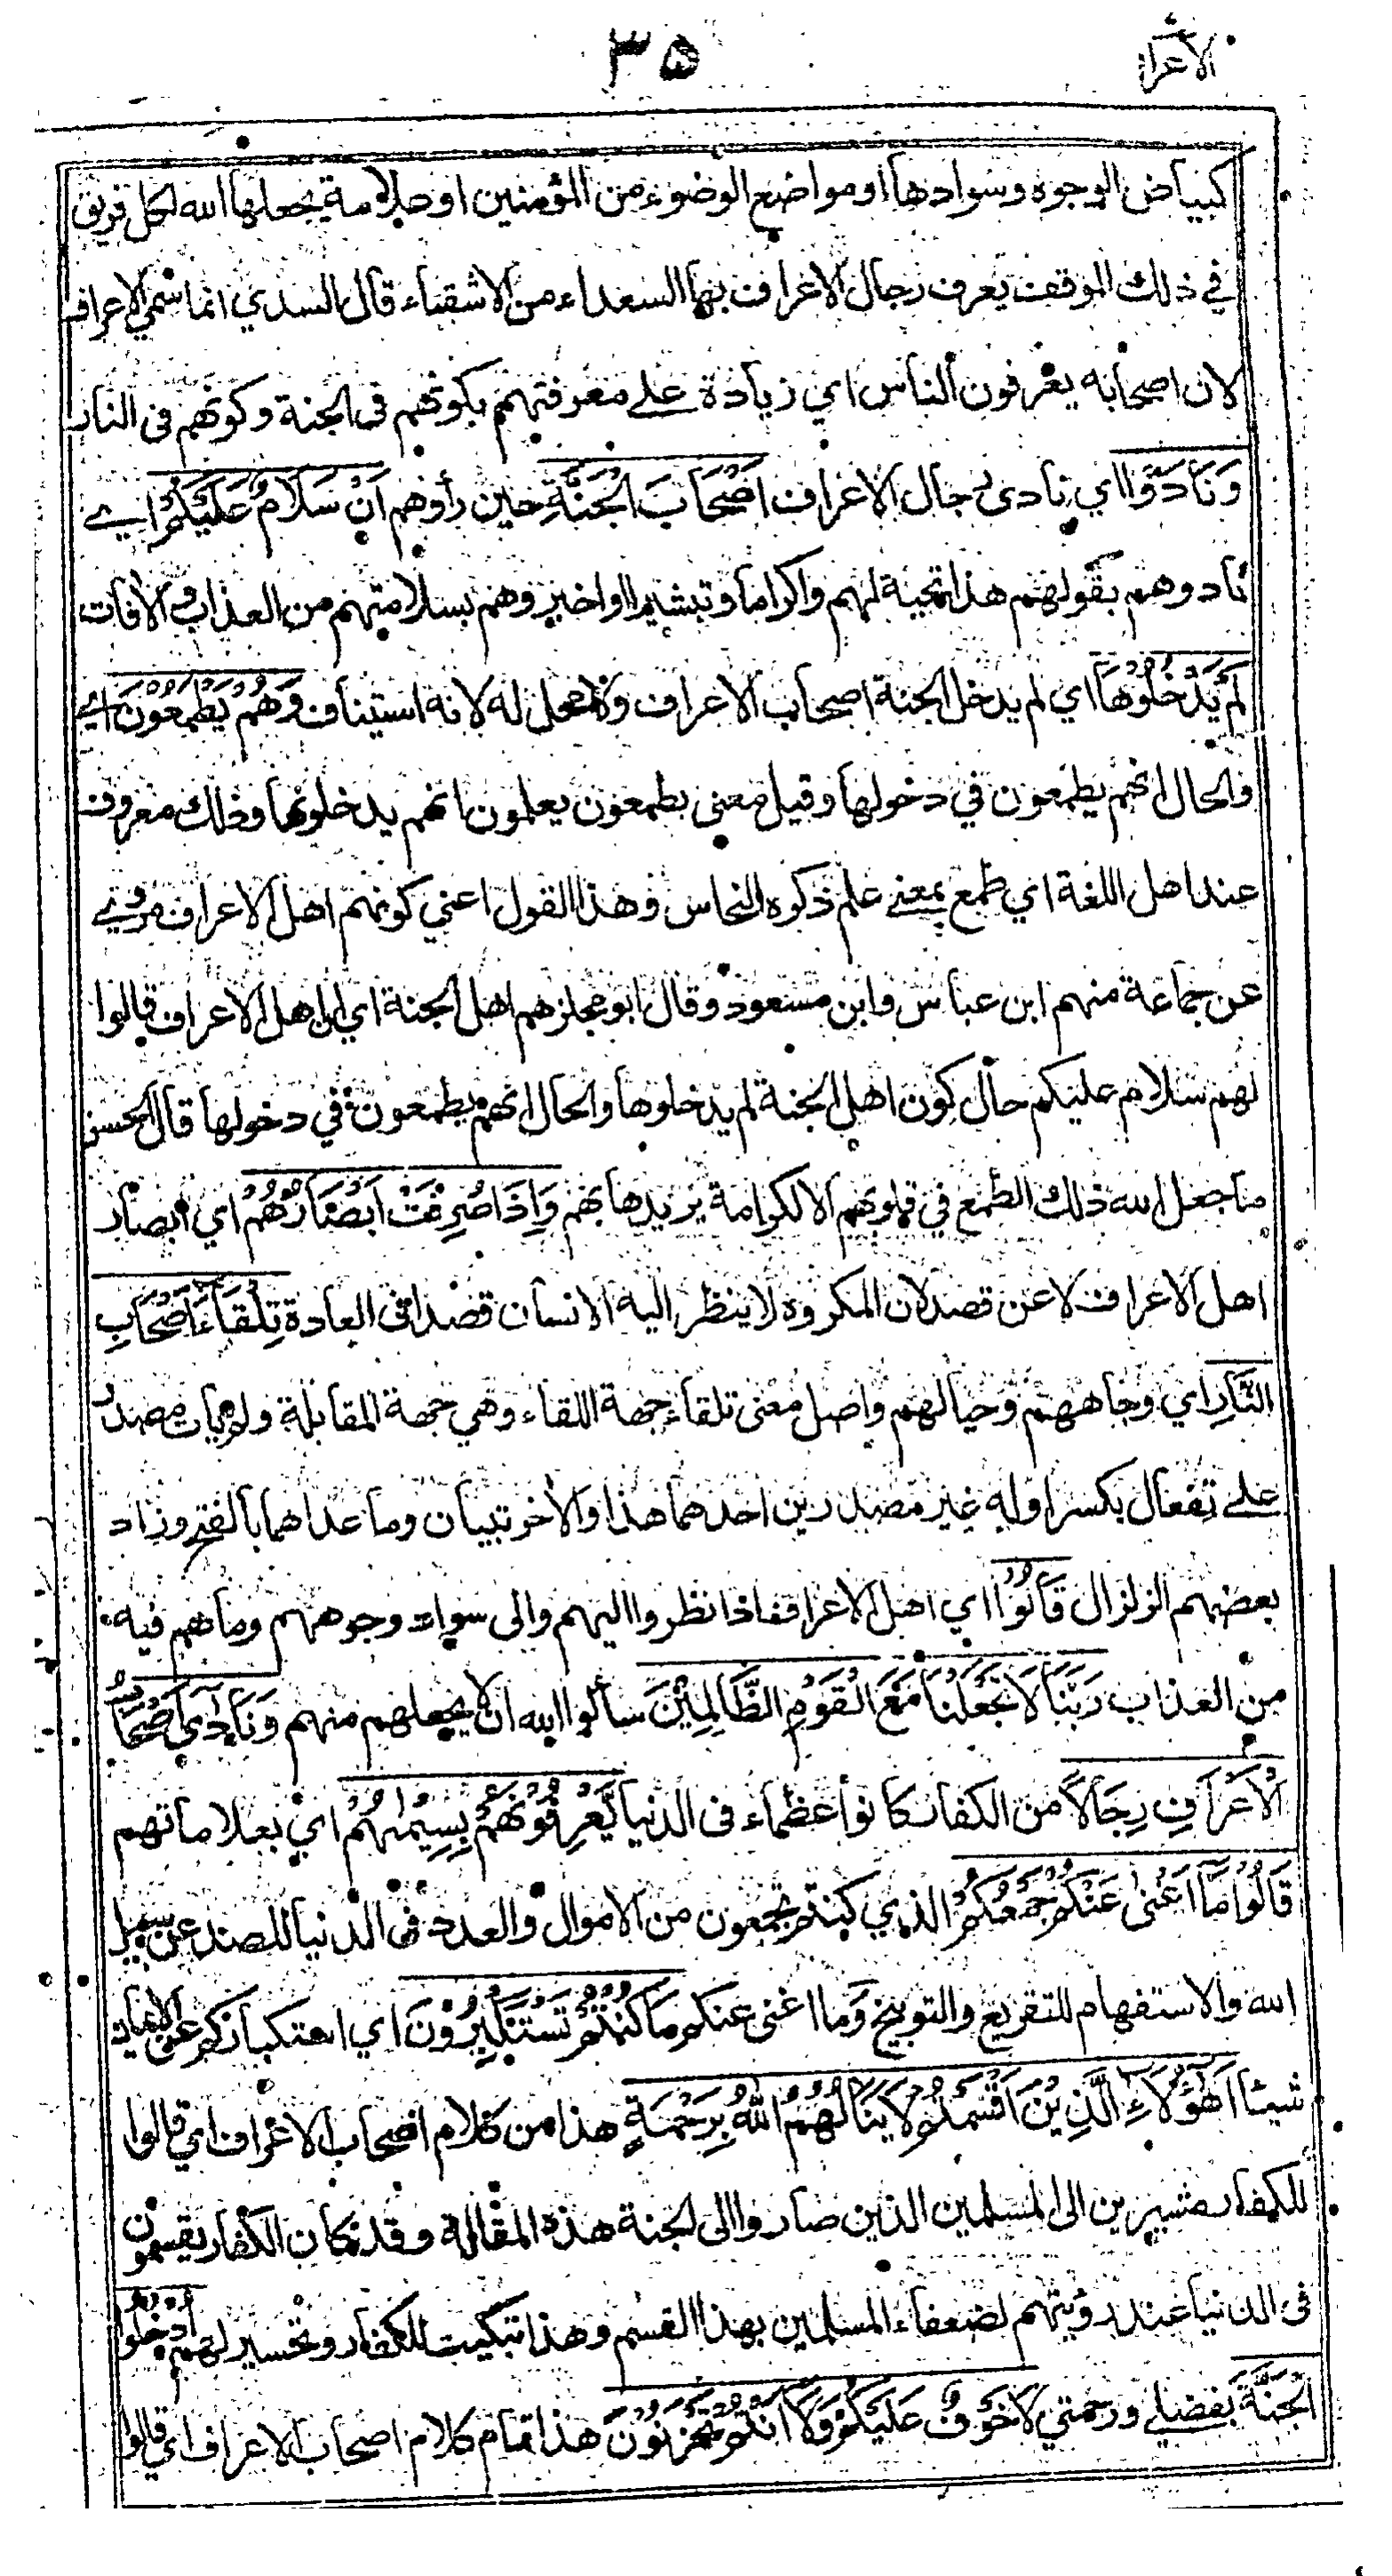 الاعراف
٣٥
كبياض الوجوه وسوادها او مواضع الوضوء من المؤمنين او علامة يجعلها الله لكل فريق
في ذلك الموقف يعرف رجال الاعراف بها السعداء من الاشقياء قال السدي انما سمي الاعراف
لان اصحابه يعرفون الناس اي زيادة على معرفتهم بكونهم في الجنة وكونهم في النار
وَنَادَوْا اي نادى رجال الاعراف اَصْحَابَ الْجَنَّةِ حين رأوهم اَنْ سَلَامٌ عَلَيْكُمْ اي
نادوهم بقولهم هذا تحية لهم واكراما وتبشيرا او اخبروهم بسلامتهم من العذاب والآفات
لَمْ يَدْخُلُوْهَا اي لم يدخل الجنة اصحاب الاعراف ولا محل له لانه استيناف وَهُمْ يَطْمَعُوْنَ اي
والحال انهم يطمعون في دخولها وقيل معنى يطمعون يعلمون انهم يدخلونها وذلك معروف
عند اهل اللغة اي طمع بمعنى علم ذكره النحاس وهذا القول اعني كونهم اهل الاعراف مروي
عن جماعة منهم ابن عباس وابن مسعود وقال ابو مجلز هم اهل الجنة اي ان اهل الاعراف قالوا
لهم سلام عليكم حال كون اهل الجنة لم يدخلوها والحال انهم يطمعون في دخولها قال الحسن
ما جعل الله ذلك الطمع في قلوبهم الا لكرامة يريدها بهم وَاِذَا صُرِفَتْ اَبْصَارُهُمْ اي ابصار
اهل الاعراف لا عن قصد لان المكروه لا ينظر اليه الانسان قصدا في العادة تِلْقَاءَ اَصْحَابِ
النَّارِ اي وجاههم وحيالهم واصل معنى تلقاء جهة اللقاء وهي جهة المقابلة ولم يات مصدر
على تفعال بكسر اوله غير مصدرين احدهما هذا والاخر تبيان وما عداهما بالفتح وزاد
بعضهم الزلزال قَالُوْا اي اهل الاعراف اذا نظروا اليهم والى سواد وجوههم وما هم فيه
من العذاب رَبَّنَا لَا تَجْعَلْنَا مَعَ الْقَوْمِ الظَّالِمِيْنَ سألوا الله ان لا يجعلهم منهم وَنَادٰى اَصْحَابُ
الْاَعْرَافِ رِجَالًا من الكفار كانوا عظماء في الدنيا يَّعْرِفُوْنَهُمْ بِسِيْمٰهُمْ اي بعلاماتهم
قَالُوْا مَا اَغْنٰى عَنْكُمْ جَمْعُكُمْ الذي كنتم تجمعون من الاموال والعدد في الدنيا للصد عن سبيل
الله والاستفهام للتقريع والتوبيخ وَما اغنى عنكم مَا كُنْتُمْ تَسْتَكْبِرُوْنَ اي استكباركم عن الايمان
شيئا اَهٰؤُلَاءِ الَّذِيْنَ اَقْسَمْتُمْ لَا يَنَالُهُمُ اللهُ بِرَحْمَةٍ هذا من كلام اصحاب الاعراف اي قالوا
للكفار مشيرين الى المسلمين الذين صاروا الى الجنة هذه المقالة وقد كان الكفار يقسمون
في الدنيا عند رؤيتهم لضعفاء المسلمين بهذا القسم وهذا تبكيت للكفار وتحسير لهم اُدْخُلُوا
الْجَنَّةَ بفضلي ورحمتي لَا خَوْفٌ عَلَيْكُمْ وَلَا اَنْتُمْ تَحْزَنُوْنَ هذا تمام كلام اصحاب الاعراف اي قالوا